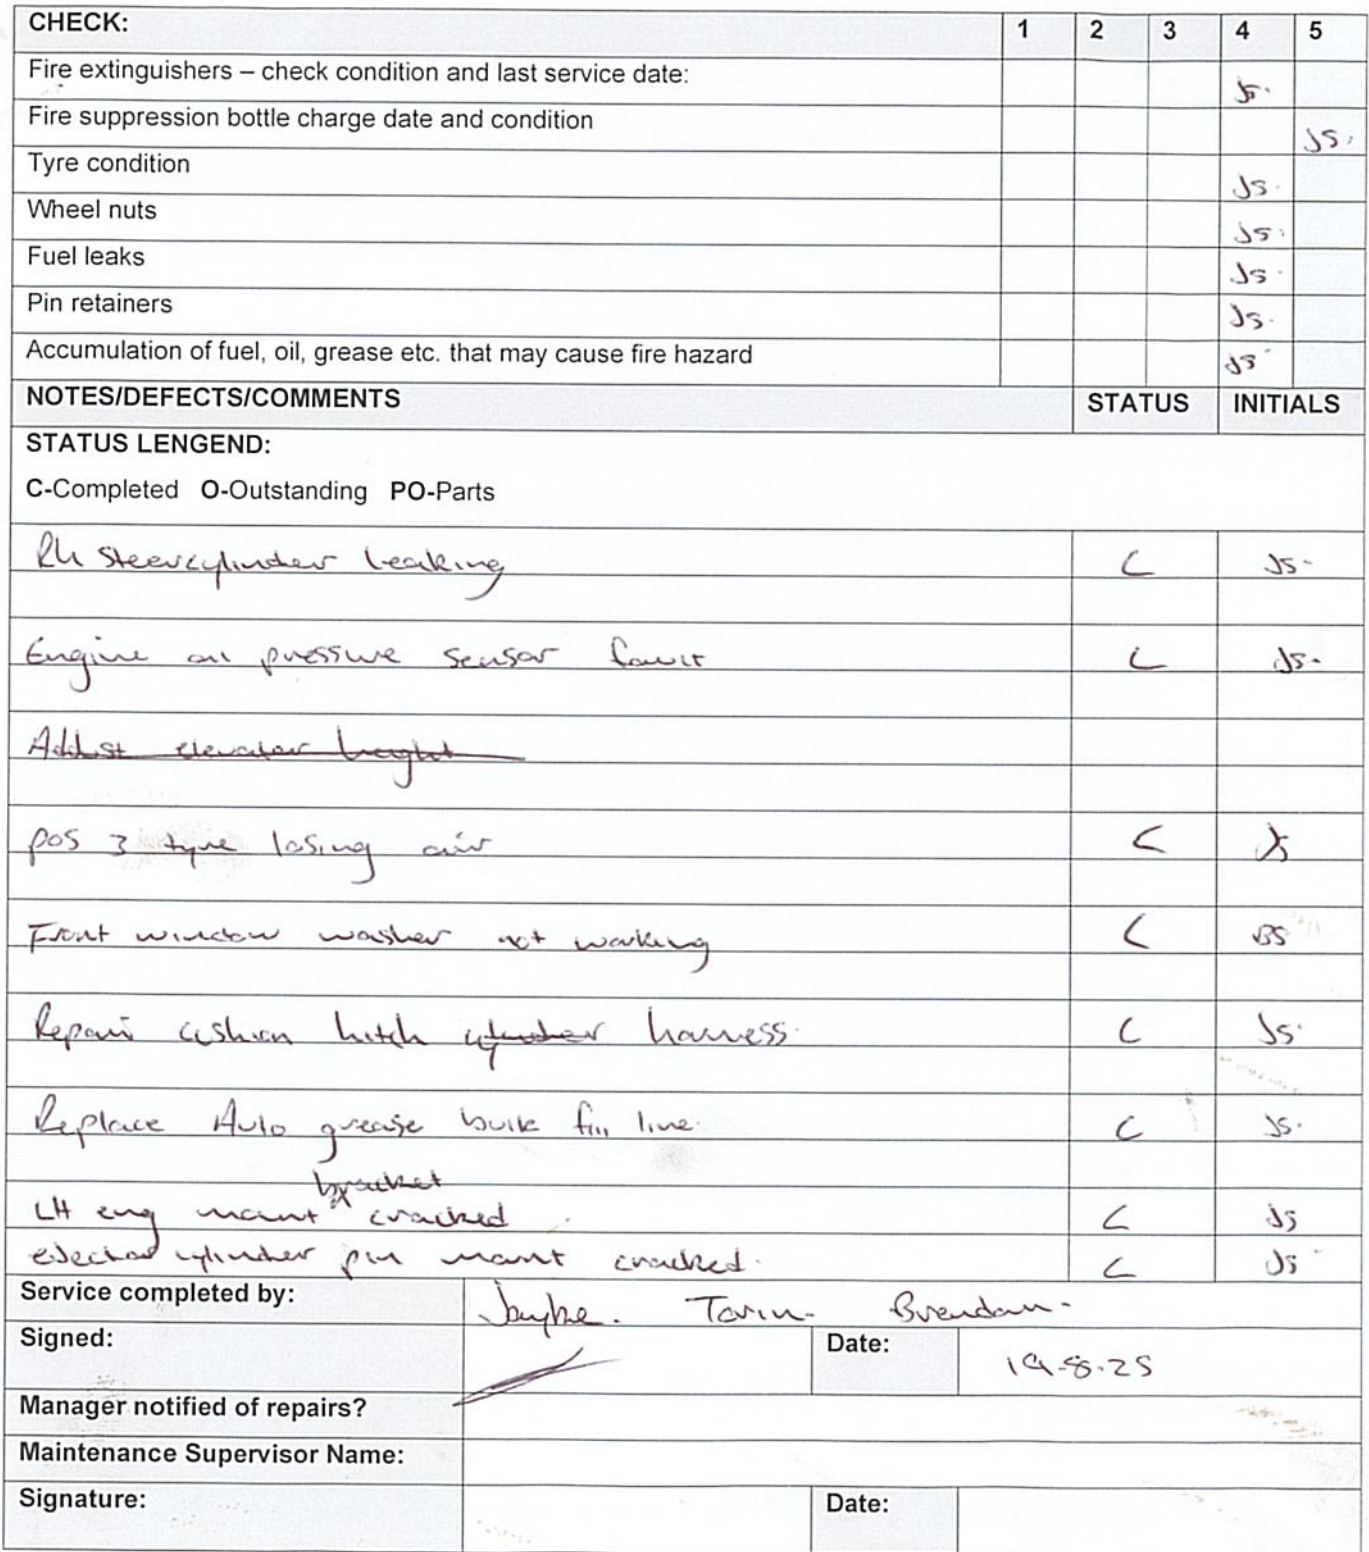 CHECK: 1 2 3 4 5
Fire extinguishers – check condition and last service date: JS.
Fire suppression bottle charge date and condition JS.
Tyre condition JS.
Wheel nuts JS.
Fuel leaks JS.
Pin retainers JS.
Accumulation of fuel, oil, grease etc. that may cause fire hazard JS
NOTES/DEFECTS/COMMENTS STATUS INITIALS
STATUS LENGEND:
C-Completed O-Outstanding PO-Parts
RH Steer cylinder leaking C JS.
Engine oil pressure sensor fault C JS.
Addust elevator height
pos 3 tyre losing air C JS
Front window washer not working C BS
Repair cushion hitch cylinder harness. C JS.
Replace Auto grease bulk fill line. C JS.
bracket
LH eng mount cracked C JS
ejector cylinder pin mount cracked. C JS
Service completed by: Jayke. Tarin. Brendan.
Signed: Date: 19.8.25
Manager notified of repairs?
Maintenance Supervisor Name:
Signature: Date: